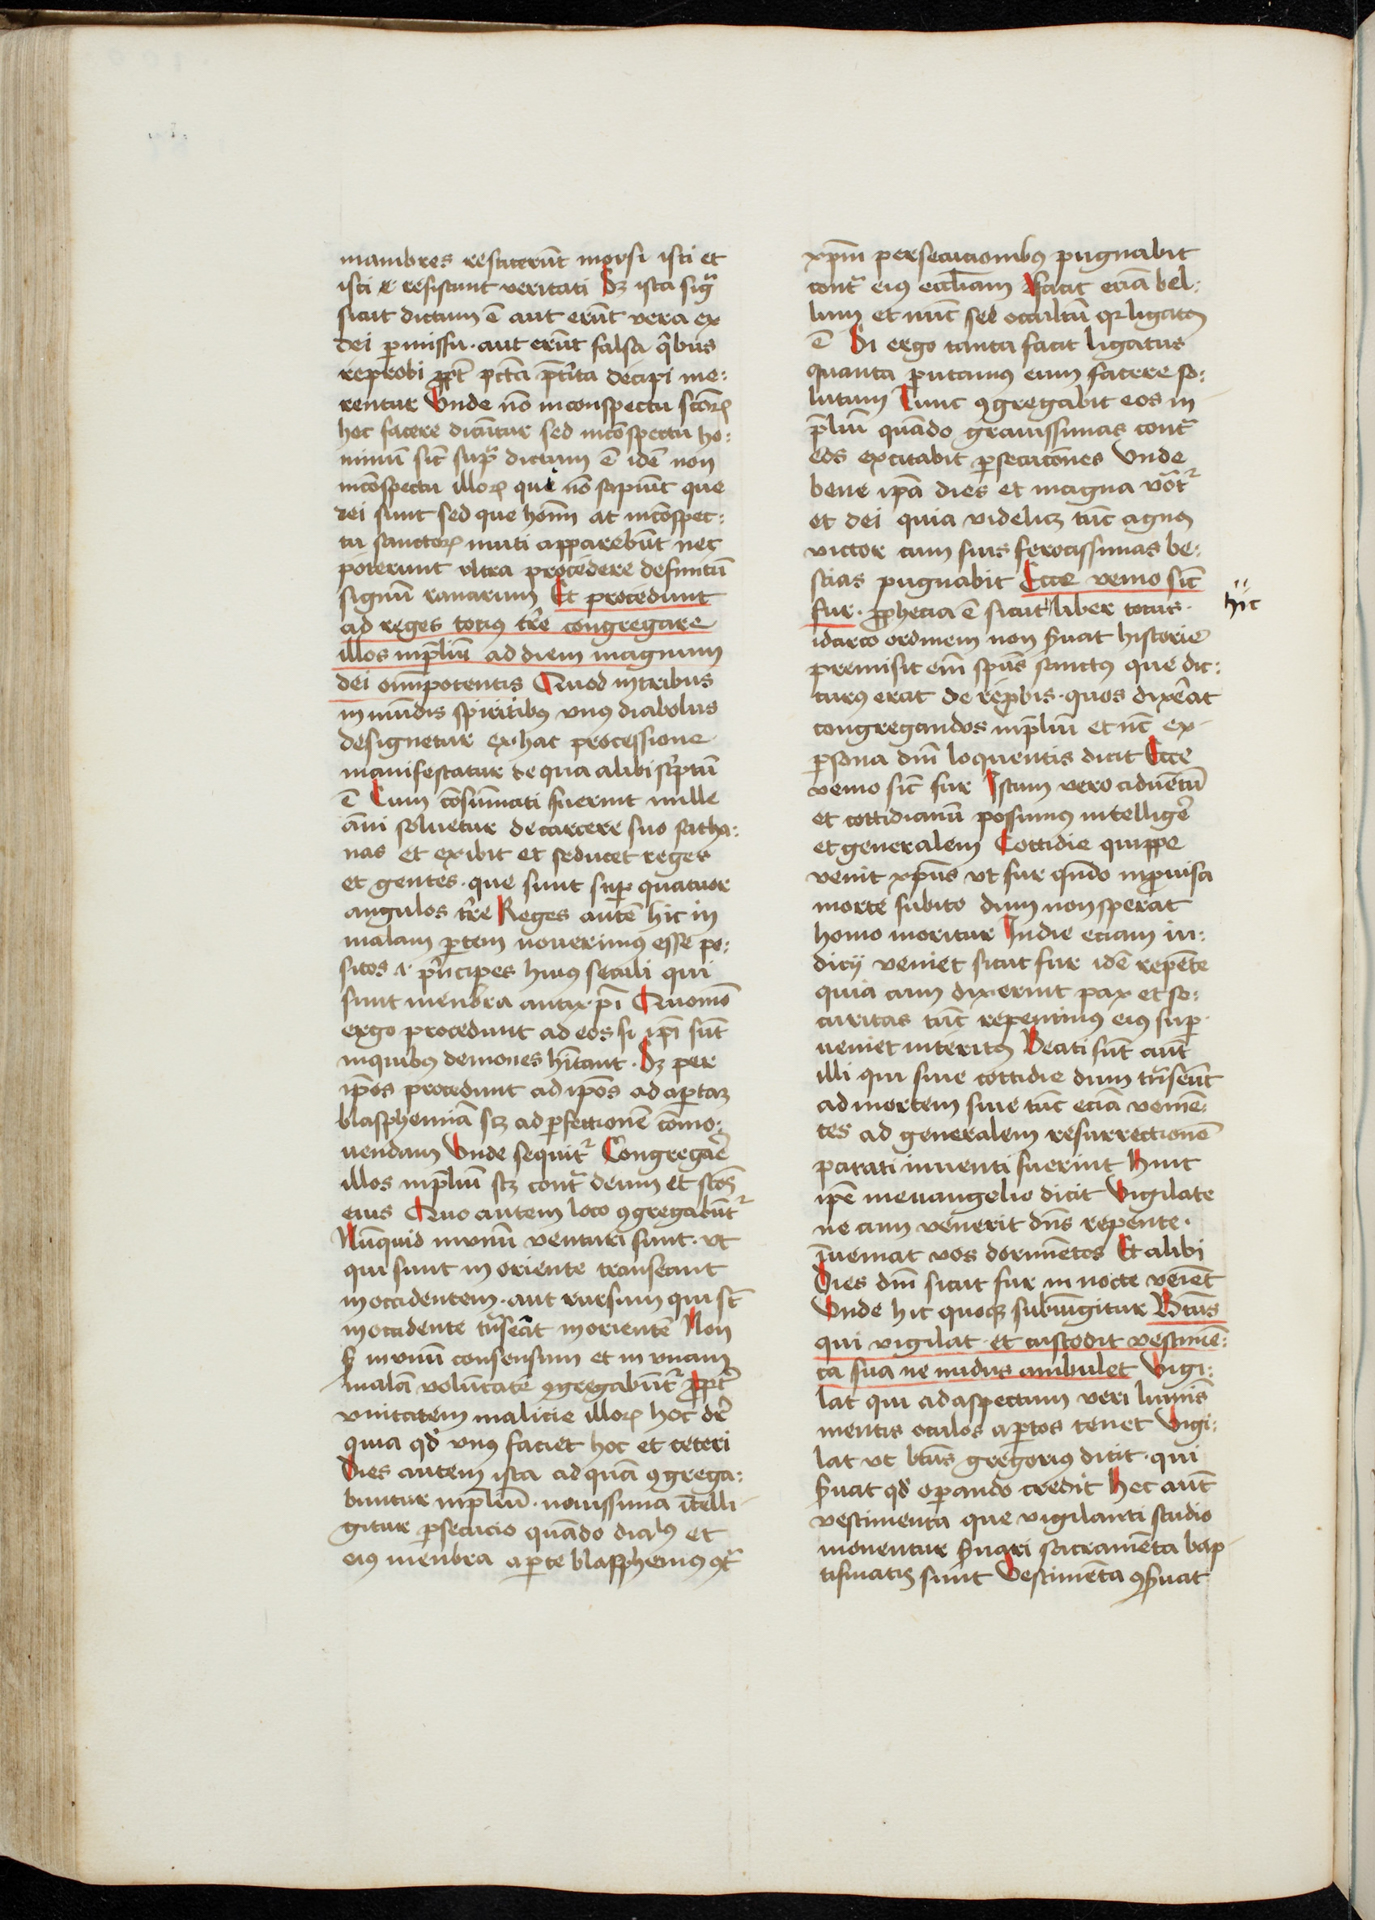 mambres restiterūt moysi isti et
isti resistunt veritati Sꝫ ista sigᷓ
sicut dictum ē aut erūt vera ex
dei ꝑmissu · aut erūt falsa qͥbus
reprobi ꝓpt̄ pctā p̄t̓ita decipi me:
rentur Vnde nō in conspectu sctōꝝ
hec facere dicūtur sed in cōspectu ho:
minū sic̄ supᷓ dictum ē idē non
in cōspectu illoꝝ qui nō sapiūt que
dei sunt sed que hom̄ at in cōspec:
tu sanctoꝝ muti apparebūt nec
poterunt vltra procedere defunctū
signū ranarum Et procedunt
ad reges totiꝰ tr̄e congregare
illos in p̄liū ad diem magnum
dei om̄ipotentis Quod in tribus
in mūdis spiritibꝰ vnꝰ diabolus
designetur ex hac processione
manifestatur de qua alibi scͥptū
ē Cum cōsūmati fuerint mille
āni soluetur de carcere suo satha:
nas et exibit et seducet reges
et gentes · que sunt suꝑ quatuor
angulos tr̄e Reges autē hic in
malam ꝑtem nouerimꝰ esse po:
sitos · i · pͥncipes huiꝰ seculi qui
sunt menbra antixp̄i Quomō
ergo procedunt ad eos si ip̄i sūt
in quibus demones hītant · Sꝫ per
ip̄os procedunt ad ip̄os ad aꝑtaꝫ
blasphemiā scꝫ ad ꝑfectionē cōmo:
uendam Vnde sequitᷣ Congregar̄
illos in p̄liū scꝫ contᷓ deum et sctōs
eius Quo autem loco ꝯgregabūtᷣ
Nūquid in vnū venturi sunt · vt
qui sunt in oriente transeant
in occidentem · aut rursum qui sūt
in occidente tᷓnseāt in orientē Non
sꝫ in vnū consensum et in vnam
malā volūtatē ꝯgregabūtᷣ ꝓpt̄
vnitatem malicie illoꝝ hoc dr̄
quia qd̓ vnꝰ faciet hoc et ceteri
Dies autem ista ad quā ꝯgrega:
buntur in p̄liū · nouissima ītelli
gitur ꝑsecucio quādo diabꝰ et
eiꝰ menbra aꝑte blasphemꝰ ꝯtᷓ
xp̄m persecucionibꝰ pugnabit
contᷓ eiꝰ eccl̄iam Facit eciā bel:
lum et nūc sed occultū qr ligatꝰ
ē Si ergo tanta facit ligatus
quanta putamꝰ eum facere so:
lutum Tunc ꝯgregabit eos in
p̄liū quādo grauissimas contᷓ
eos excitabit ꝑsecucōnes Vnde
bene ip̄a dies et magna vōtᷣ
et dei quia videlicꝫ tūc agnꝰ
victor cum suis ferocissimas be:
stias pugnabit Ecce venio sic̄
fur · ꝓphecia ē sicut liber totus ·
hic
idcirco ordinem non s̓uat historie
premisit em̄ sp̄us sanctꝰ que dic:
turꝰ erat de reꝓbis · quos dixerāt
congregandos in p̄liū et nūc ex
ꝑsona dn̄i loquentis dicit Ecce
venio sic̄ fur Istum vero aduētū
et cottidianū possumus intelliger̄
et generalem Cottidie quippe
venit xp̄us vt fur qn̄do inꝓuisa
morte subito dum non sperat
homo moritur In die eciam iu:
dicij veniet sicut fur idē repēte
quia cum dixerint pax et se:
curitas tūc repentinꝰ eiꝰ suꝑ
ueniet interitꝰ Beati sūt aut̄
illi qui siue cottidie dum tᷓnseūt
ad mortem siue tūc eciā venien:
tes ad generalem resurrectionē
parati inuenti fuerint Hinc
ip̄e in euangelio dicit Vigilate
ne cum venerit dn̄s repente ·
īueniat vos dormētes Et alibi
Dies dn̄i sicut fur in nocte veniēt
Vnde hic quoqꝫ subiūgitur Btūs
qui vigilat · et custodit vestimē:
ta sua ne nudus ambulet Vigi:
lat qui ad aspectum veri lumīs
mentis oculos aꝑtos tenet Vigi:
lat vt btūs gregorius dicit · qui
s̓uat qd̓ oꝑando credit Hec aut̄
vestimenta que vigilanti studio
monentur s̓uari sacramēta bap
tismatis sunt Vestimēta ꝯs̓uat